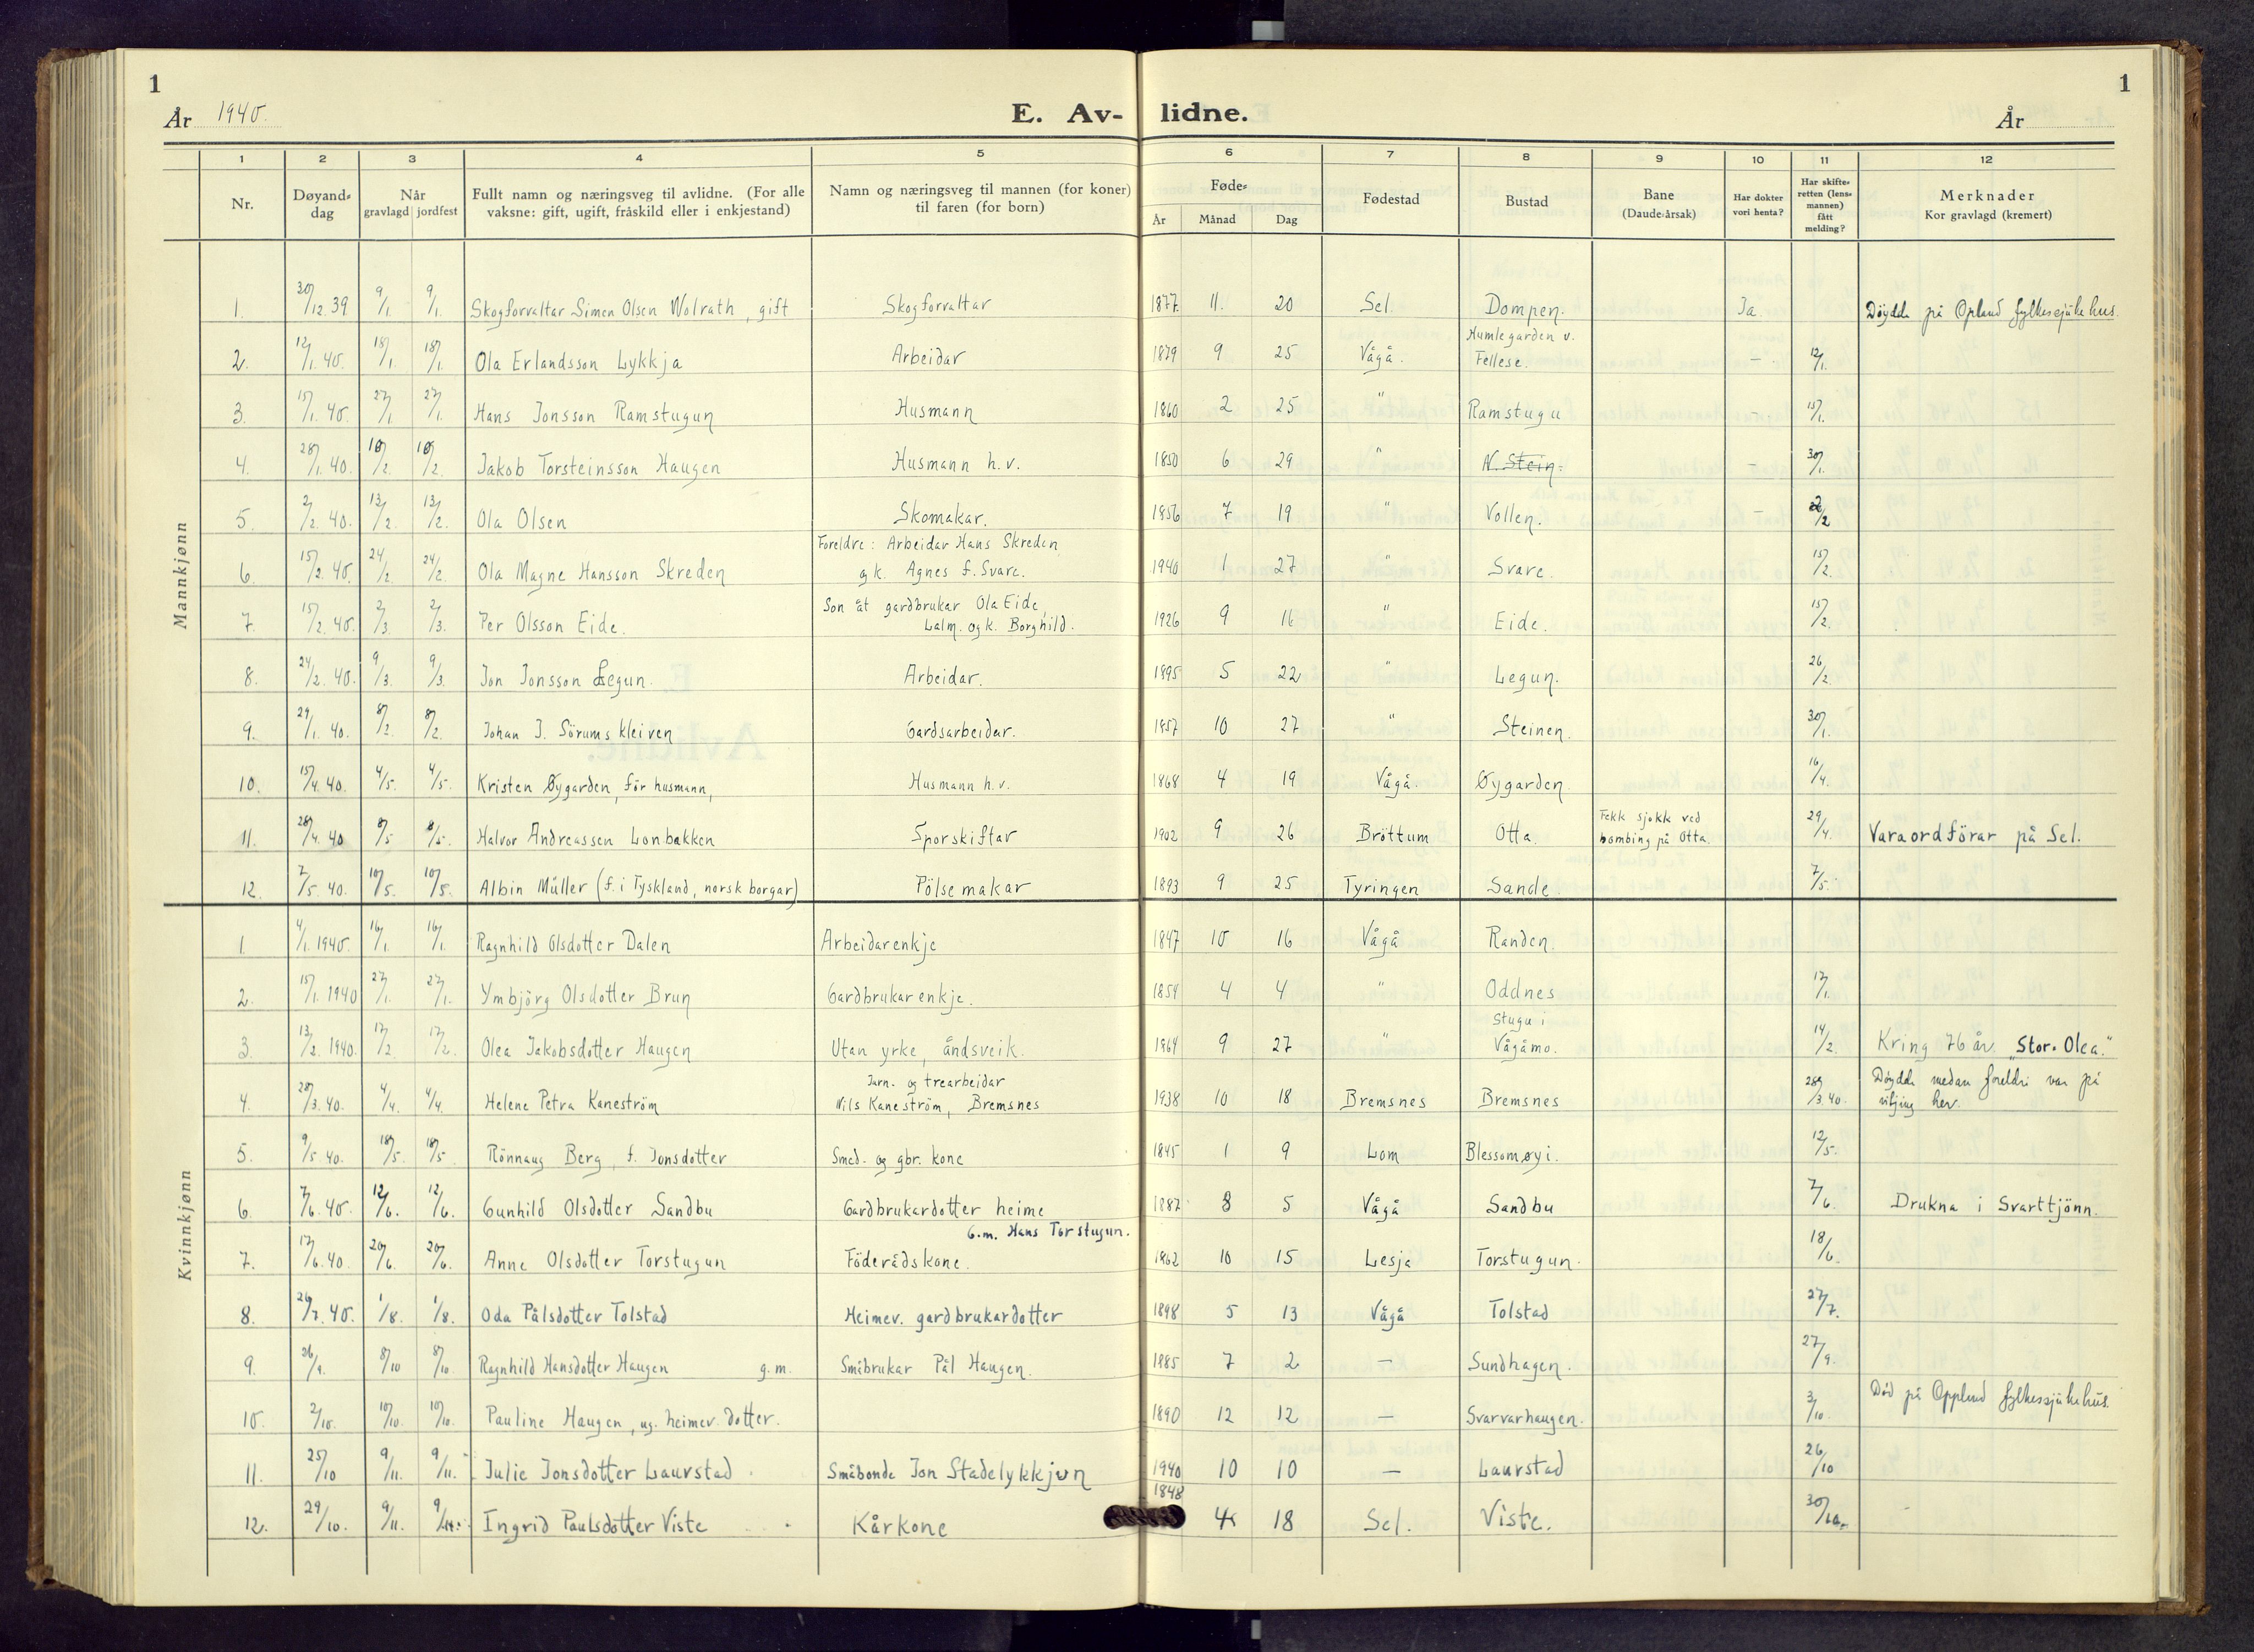 1
1
År 1940.
E. Av-
lidne.
År
1 2 3 4 5 6 7 8 9 10 11 12
Nr. Døyand-dag Når gravlagd jordfest Fullt namn og næringsveg til avlidne. (For alle vaksne: gift, ugift, fråskild eller i enkjestand) Namn og næringsveg til mannen (for koner) til faren (for born) Føde- År Månad Dag Fødestad Bustad Bane (Daude-årsak) Har dokter vori henta? Har skifte-retten (lens-mannen) fått melding? Merknader Kor gravlagd (kremert)
Mannkjønn
1. 30/12.39 9/1. 9/1. Skogforvaltar Simen Olsen Wolrath, gift Skogforvaltar 1877. 11. 20 Sel. Dompen. Ja. Döydde på Opland fylkessjukehus.
2. 12/1.40. 18/1. 18/1. Ola Erlandsson Lykkja Arbeidar 1879 9 25 Vågå. Humlegarden v. Fellese. — 12/1.
3. 15/1.40. 27/1 27/1. Hans Jonsson Ramstugun Husmann 1860 2 25 " Ramstugu 15/1.
4. 28/1.40. 10/2. 10/2. Jakob Torsteinsson Haugen Husmann h.v. 1850 6 29 " N. Stein. - 30/1.
5. 2/2.40. 13/2. 13/2. Ola Olsen Skomakar. 1856 7 19 " Vollen. - 2/2
6. 15/2.40. 24/2. 24/2. Ola Magne Hansson Skreden Foreldre: Arbeidar Hans Skreden og k. Agnes f. Svare. 1940 1 27 " Svare. 15/2.
7. 15/2.40. 2/3. 2/3. Per Olsson Eide. Son åt gardbrukar Ola Eide, Lalm. og k. Borghild. 1926 9 16 " Eide. 15/2.
8. 24/2.40. 9/3. 9/3. Jon Jonsson Legun. Arbeidar. 1895 5 22 " Legun. 26/2.
9. 29/1.40. 8/2. 8/2. Johan J. Sörumskleiven Gardsarbeidar. 1857 10 27 " Steinen. 30/1.
10. 15/4.40. 4/5. 4/5. Kristen Øygarden, för husmann, Husmann h.v. 1868 4 19 Vågå. Øygarden. 16/4.
11. 28/4.40 8/5 8/5. Halvor Andreassen Lonbakken Sporskiftar 1902 9 26 Bröttum Otta. Fekk sjokk ved bombing på Otta. 29/4. Varaordförar på Sel.
12. 7/5.40. 10/5. 10/5. Albin Müller (f. i Tyskland, norsk borgar) Pölsemakar 1893 9 25 Tyringen Sande. 7/5.
Kvinnkjønn
1. 4/1.1940. 16/1. 16/1. Ragnhild Olsdotter Dalen Arbeidarenkje 1847 10 16 Vågå Randen.
2. 15/1.1940 27/1. 27/1. Ymbjörg Olsdotter Brun Gardbrukarenkje. 1854 4 4 " Oddnes 17/1.
3. 13/2.1940. 17/2 17/2. Olea Jakobsdotter Haugen Utan yrke, åndsveik. 1864 9 27 " Stugu i Vågåmo. 14/2. Kring 76 år. "Stor-Olea."
4. 28/3.40. 4/4. 4/4. Helene Petra Kaneström Jarn- og trearbeidar Nils Kaneström, Bremsnes 1938 10 18 Bremsnes Bremsnes 28/3.40. Döydde medan foreldri var på vitjing her.
5. 9/5.40. 18/5. 18/5. Rönnaug Berg, f. Jonsdotter Smed- og gbr. kone 1845 1 9 Lom Blessomøyi. 12/5.
6. 7/6.40. 12/6. 12/6. Gunhild Olsdotter Sandbu Gardbrukardotter heime 1887 8 5 Vågå Sandbu 7/6. Drukna i Svarttjönn.
7. 17/6.40. 20/6. 20/6. Anne Olsdotter Torstugun G.m. Hans Torstugun. Föderådskone. 1862 10 15 Lesja Torstugun. 18/6.
8. 26/7.40. 1/8. 1/8. Oda Pålsdotter Tolstad Heimev. gardbrukardotter 1898 5 13 Vågå Tolstad 27/7.
9. 26/9. 8/10 8/10. Ragnhild Hansdotter Haugen g.m. Småbrukar Pål Haugen. 1885 7 2 — Sundhagen. 27/9.
10. 2/10. 10/10. 10/10. Pauline Haugen, ug. heimev. dotter. 1890 12 12 — Svarvarhaugen. 3/10. Död på Oppland fylkessjukehus.
11. 25/10 9/11. 9/11. Julie Jonsdotter Laurstad Småbonde Jon Stadelykkjun 1940 10 10 — Laurstad 26/10
12. 29/10. 9/11. 9/11. Ingrid Paulsdotter Viste Kårkone 1848 4 18 Sel. Viste. 30/10.